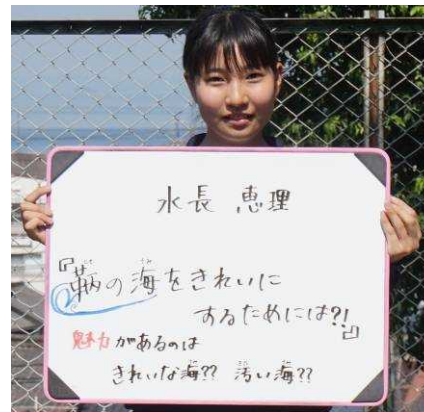 水長 恵理
『鞆の海をきれいに
するためには?!』
魅力があるのは
きれいな海?? 汚い海??